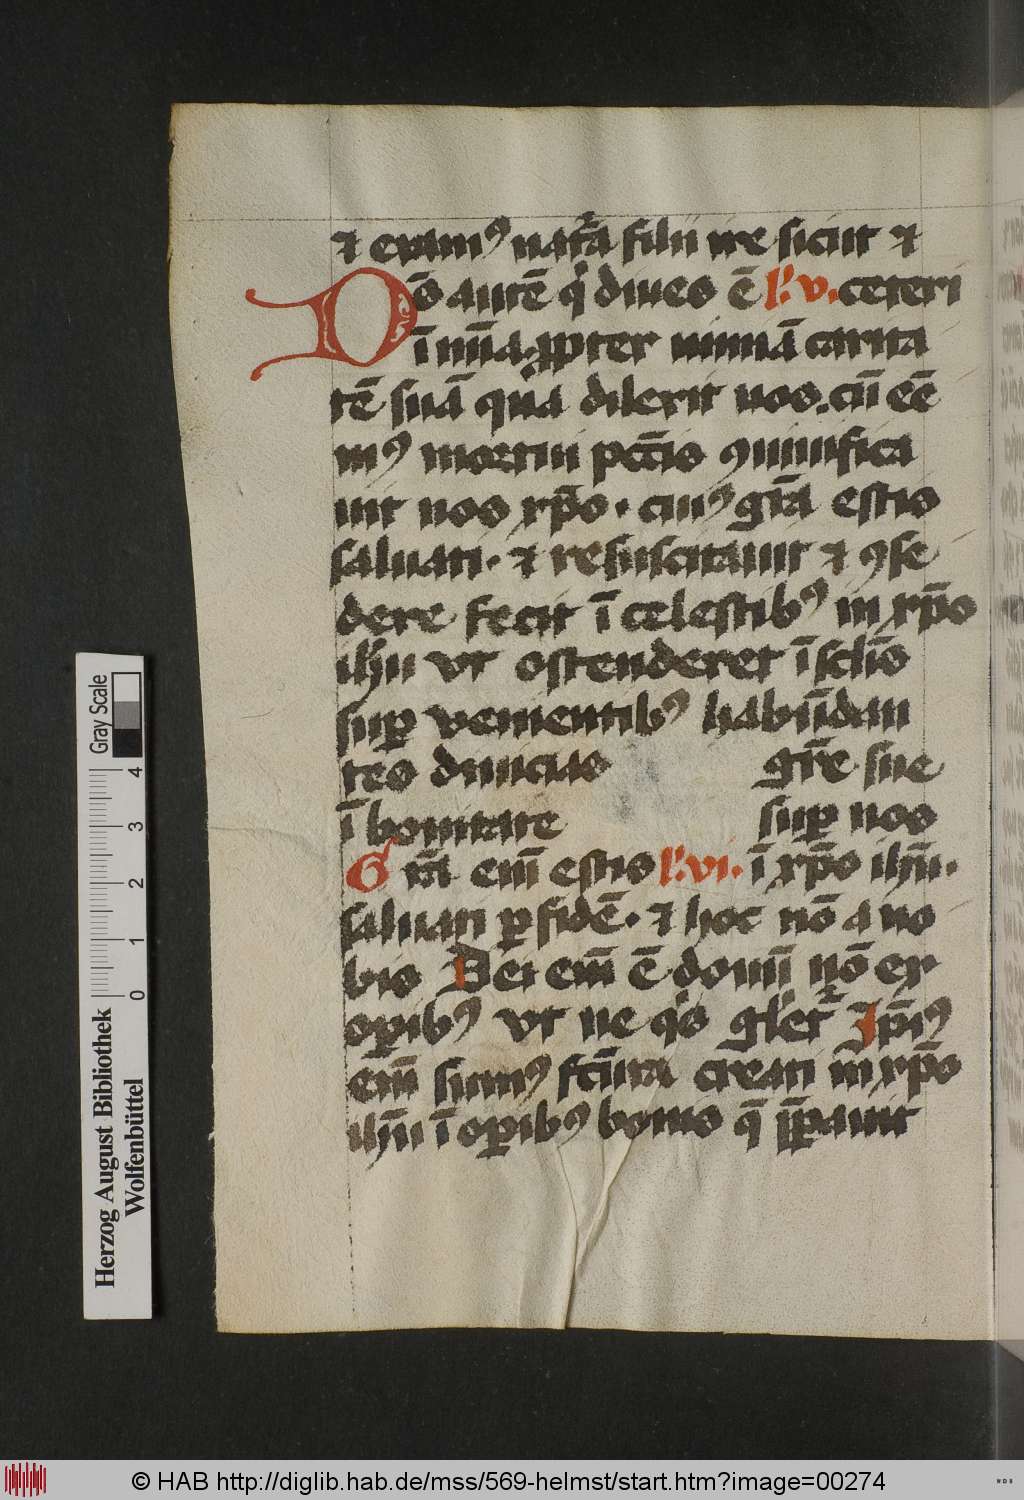 ⁊ eramꝰ nat᷑a filii ire sicut ⁊
Dē autē qͥ diues ē lc̄.v. ceteri
ī mīa. ꝓpter nimiā carita
tē suā qua dilexit nos. cū eēꝫ
mꝰ mortui pctīs ꝯuiuifica
uit nos xp̄o. cuiꝰ gr̄a estis
saluati. ⁊ resuscitauit ⁊ ꝯse
dere fecit ī celestibꝰ in xp̄o
ih̄u vt ostenderet ī sclīs
suꝑ venientibꝰ habūdan
tes diuicias gr̄e sue
ī bonitate suꝑ nos
Gr̄a em̄ estis lc̄.vi. ī xp̄o ih̄u.
saluati ꝑ fidē. ⁊ hoc nō a uo
bis Dei em̄ ē donū nō ex
oꝑibꝰ vt ne qͥs gl̄et᷑ Ip̄iꝰ
em̄ sumꝰ fc̄ura creati in xp̄o
ih̄u ī oꝑibꝰ bonis q̄ p̄ꝑauit
Herzog August Bibliothek
Wolfenbüttel
0 1 2 3 4
Gray Scale
© HAB http://diglib.hab.de/mss/569-helmst/start.htm?image=00274